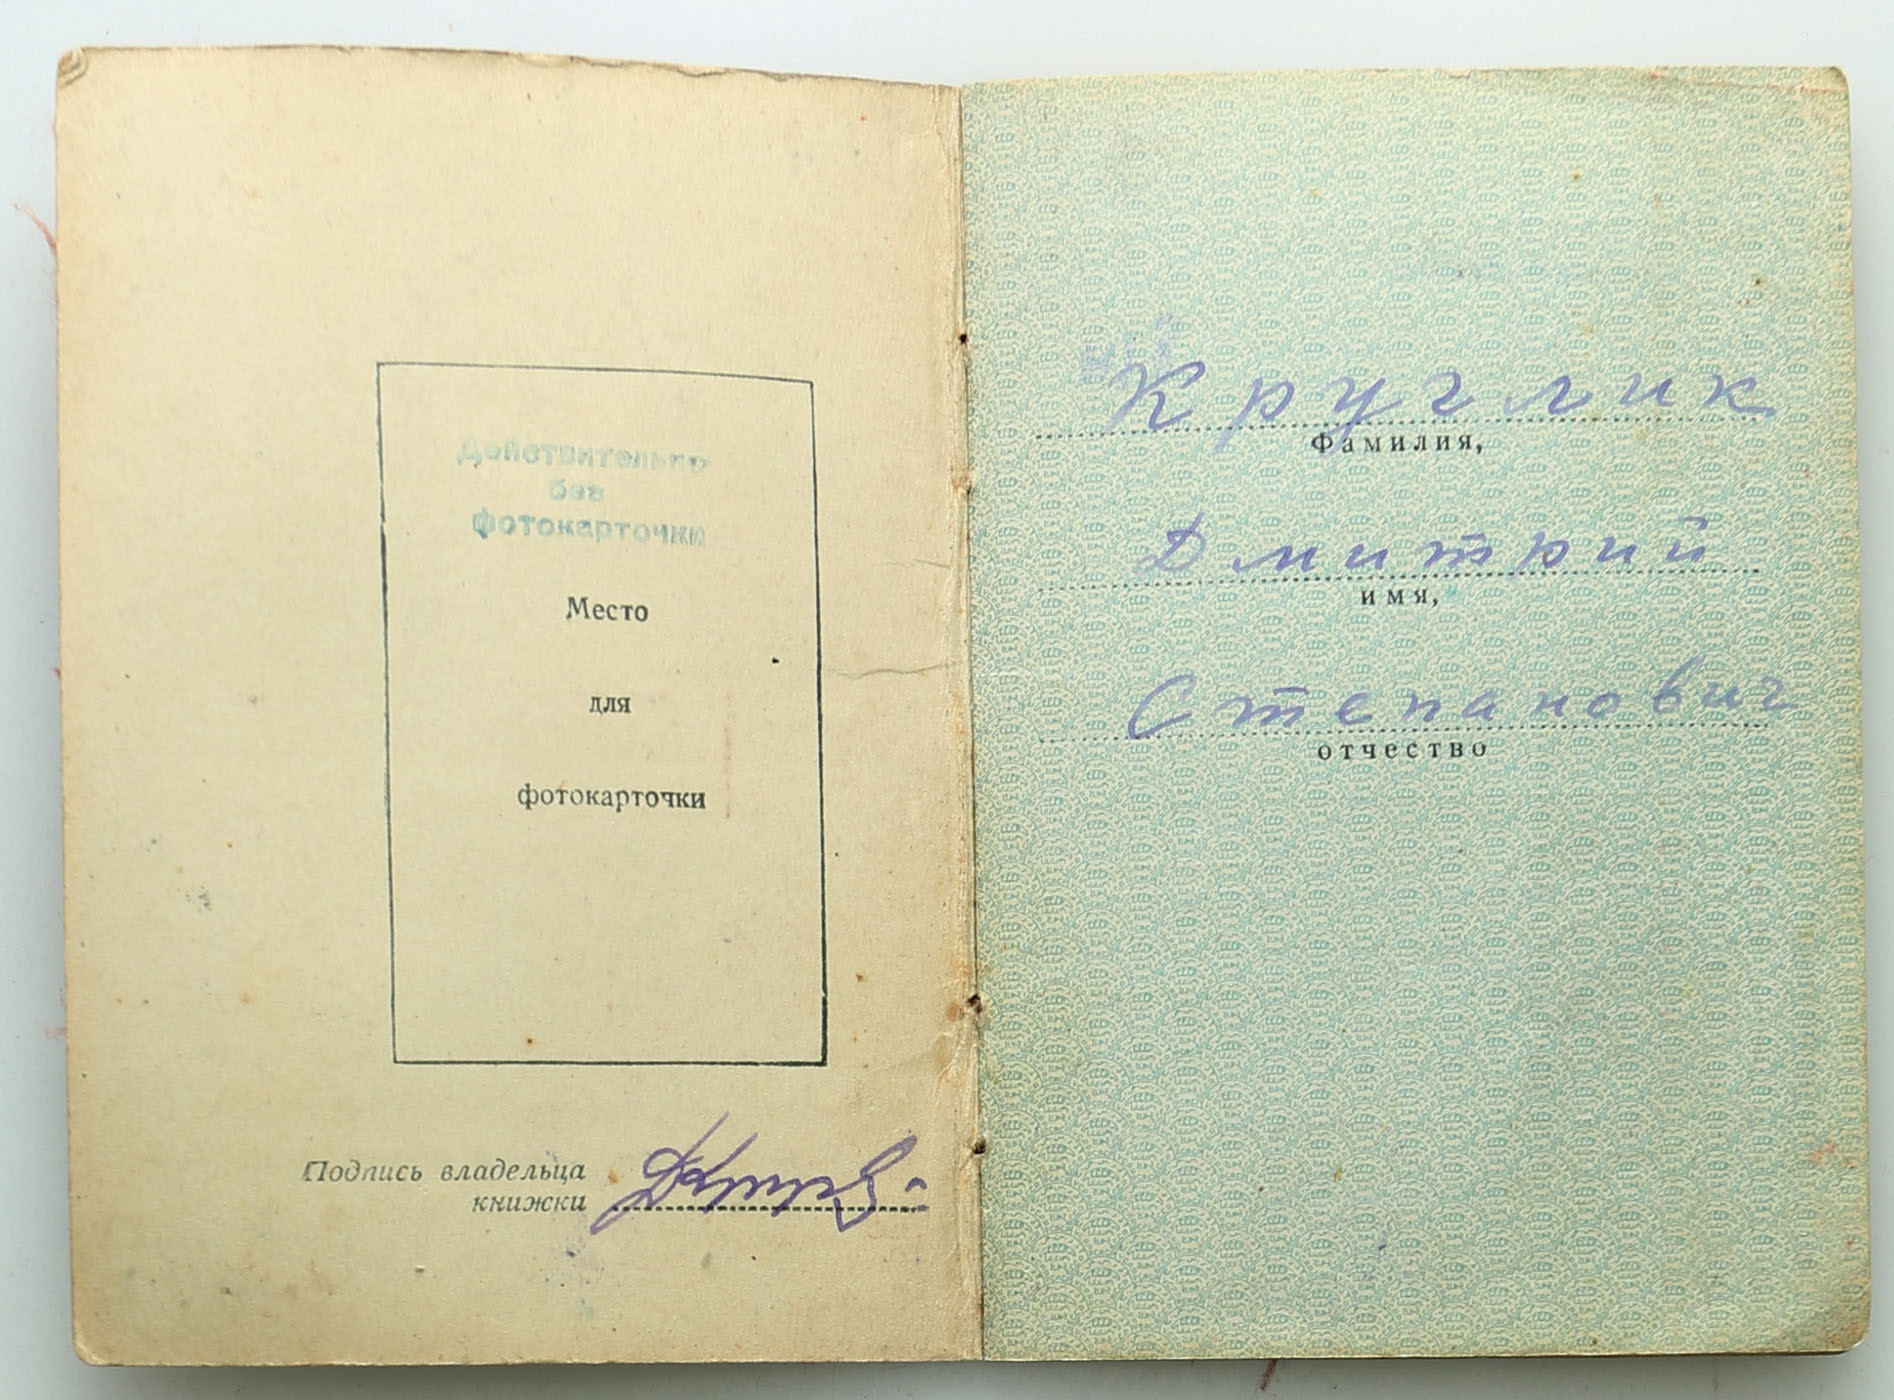 Действительно
без
фотокарточки
Место
для
фотокарточки
Подпись владельца
книжки
Круглик
Фамилия,
Дмитрий
имя,
Степанович
отчество